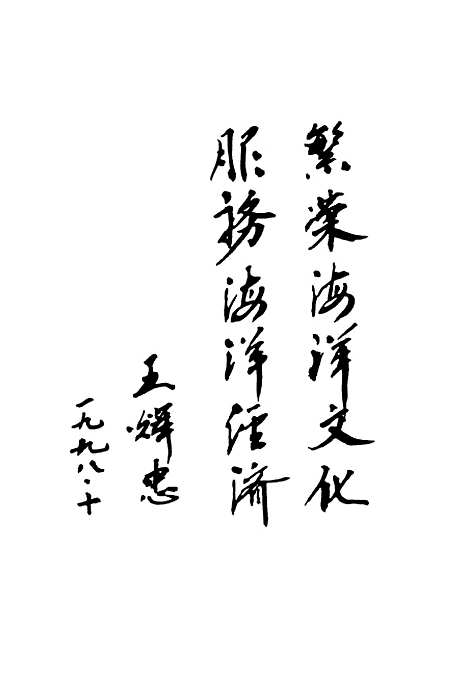 繁荣海洋文化
服務海洋经济
王辉忠
一九九八·十